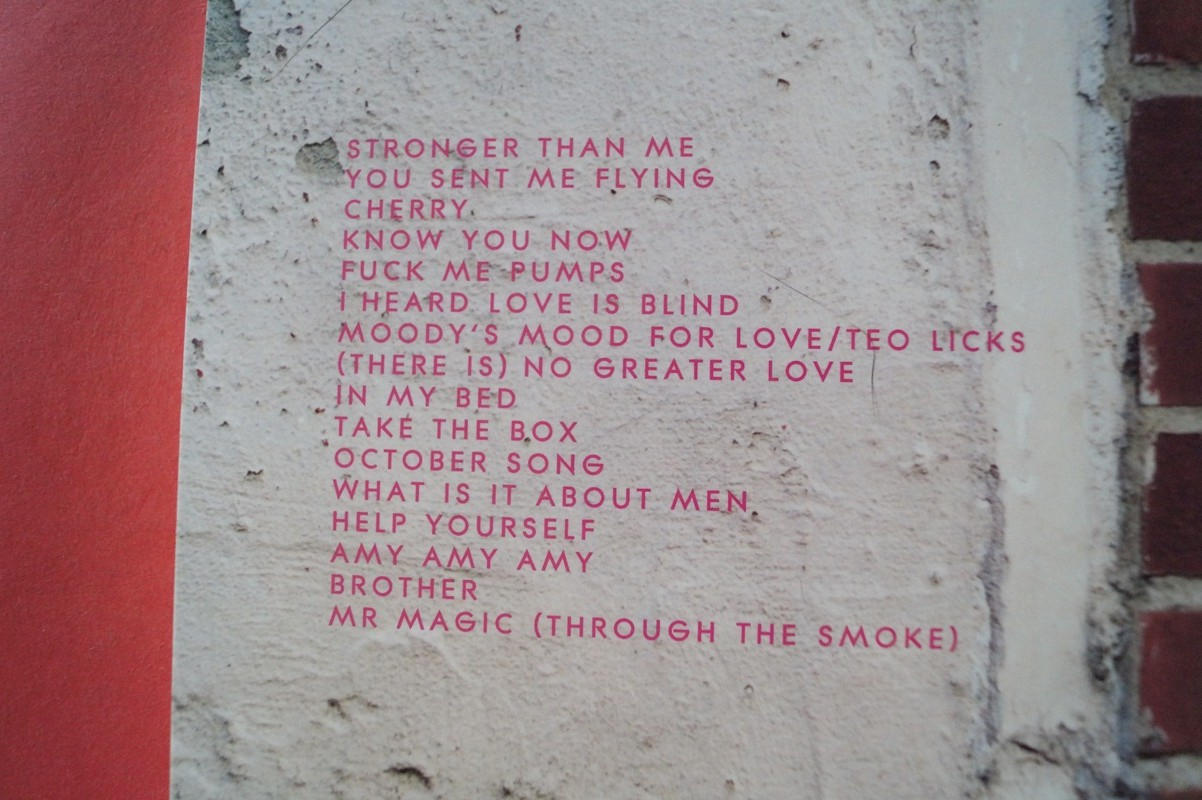 STRONGER THAN ME
YOU SENT ME FLYING
CHERRY
KNOW YOU NOW
FUCK ME PUMPS
I HEARD LOVE IS BLIND
MOODY'S MOOD FOR LOVE/TEO LICKS
(THERE IS) NO GREATER LOVE
IN MY BED
TAKE THE BOX
OCTOBER SONG
WHAT IS IT ABOUT MEN
HELP YOURSELF
AMY AMY AMY
BROTHER
MR MAGIC (THROUGH THE SMOKE)